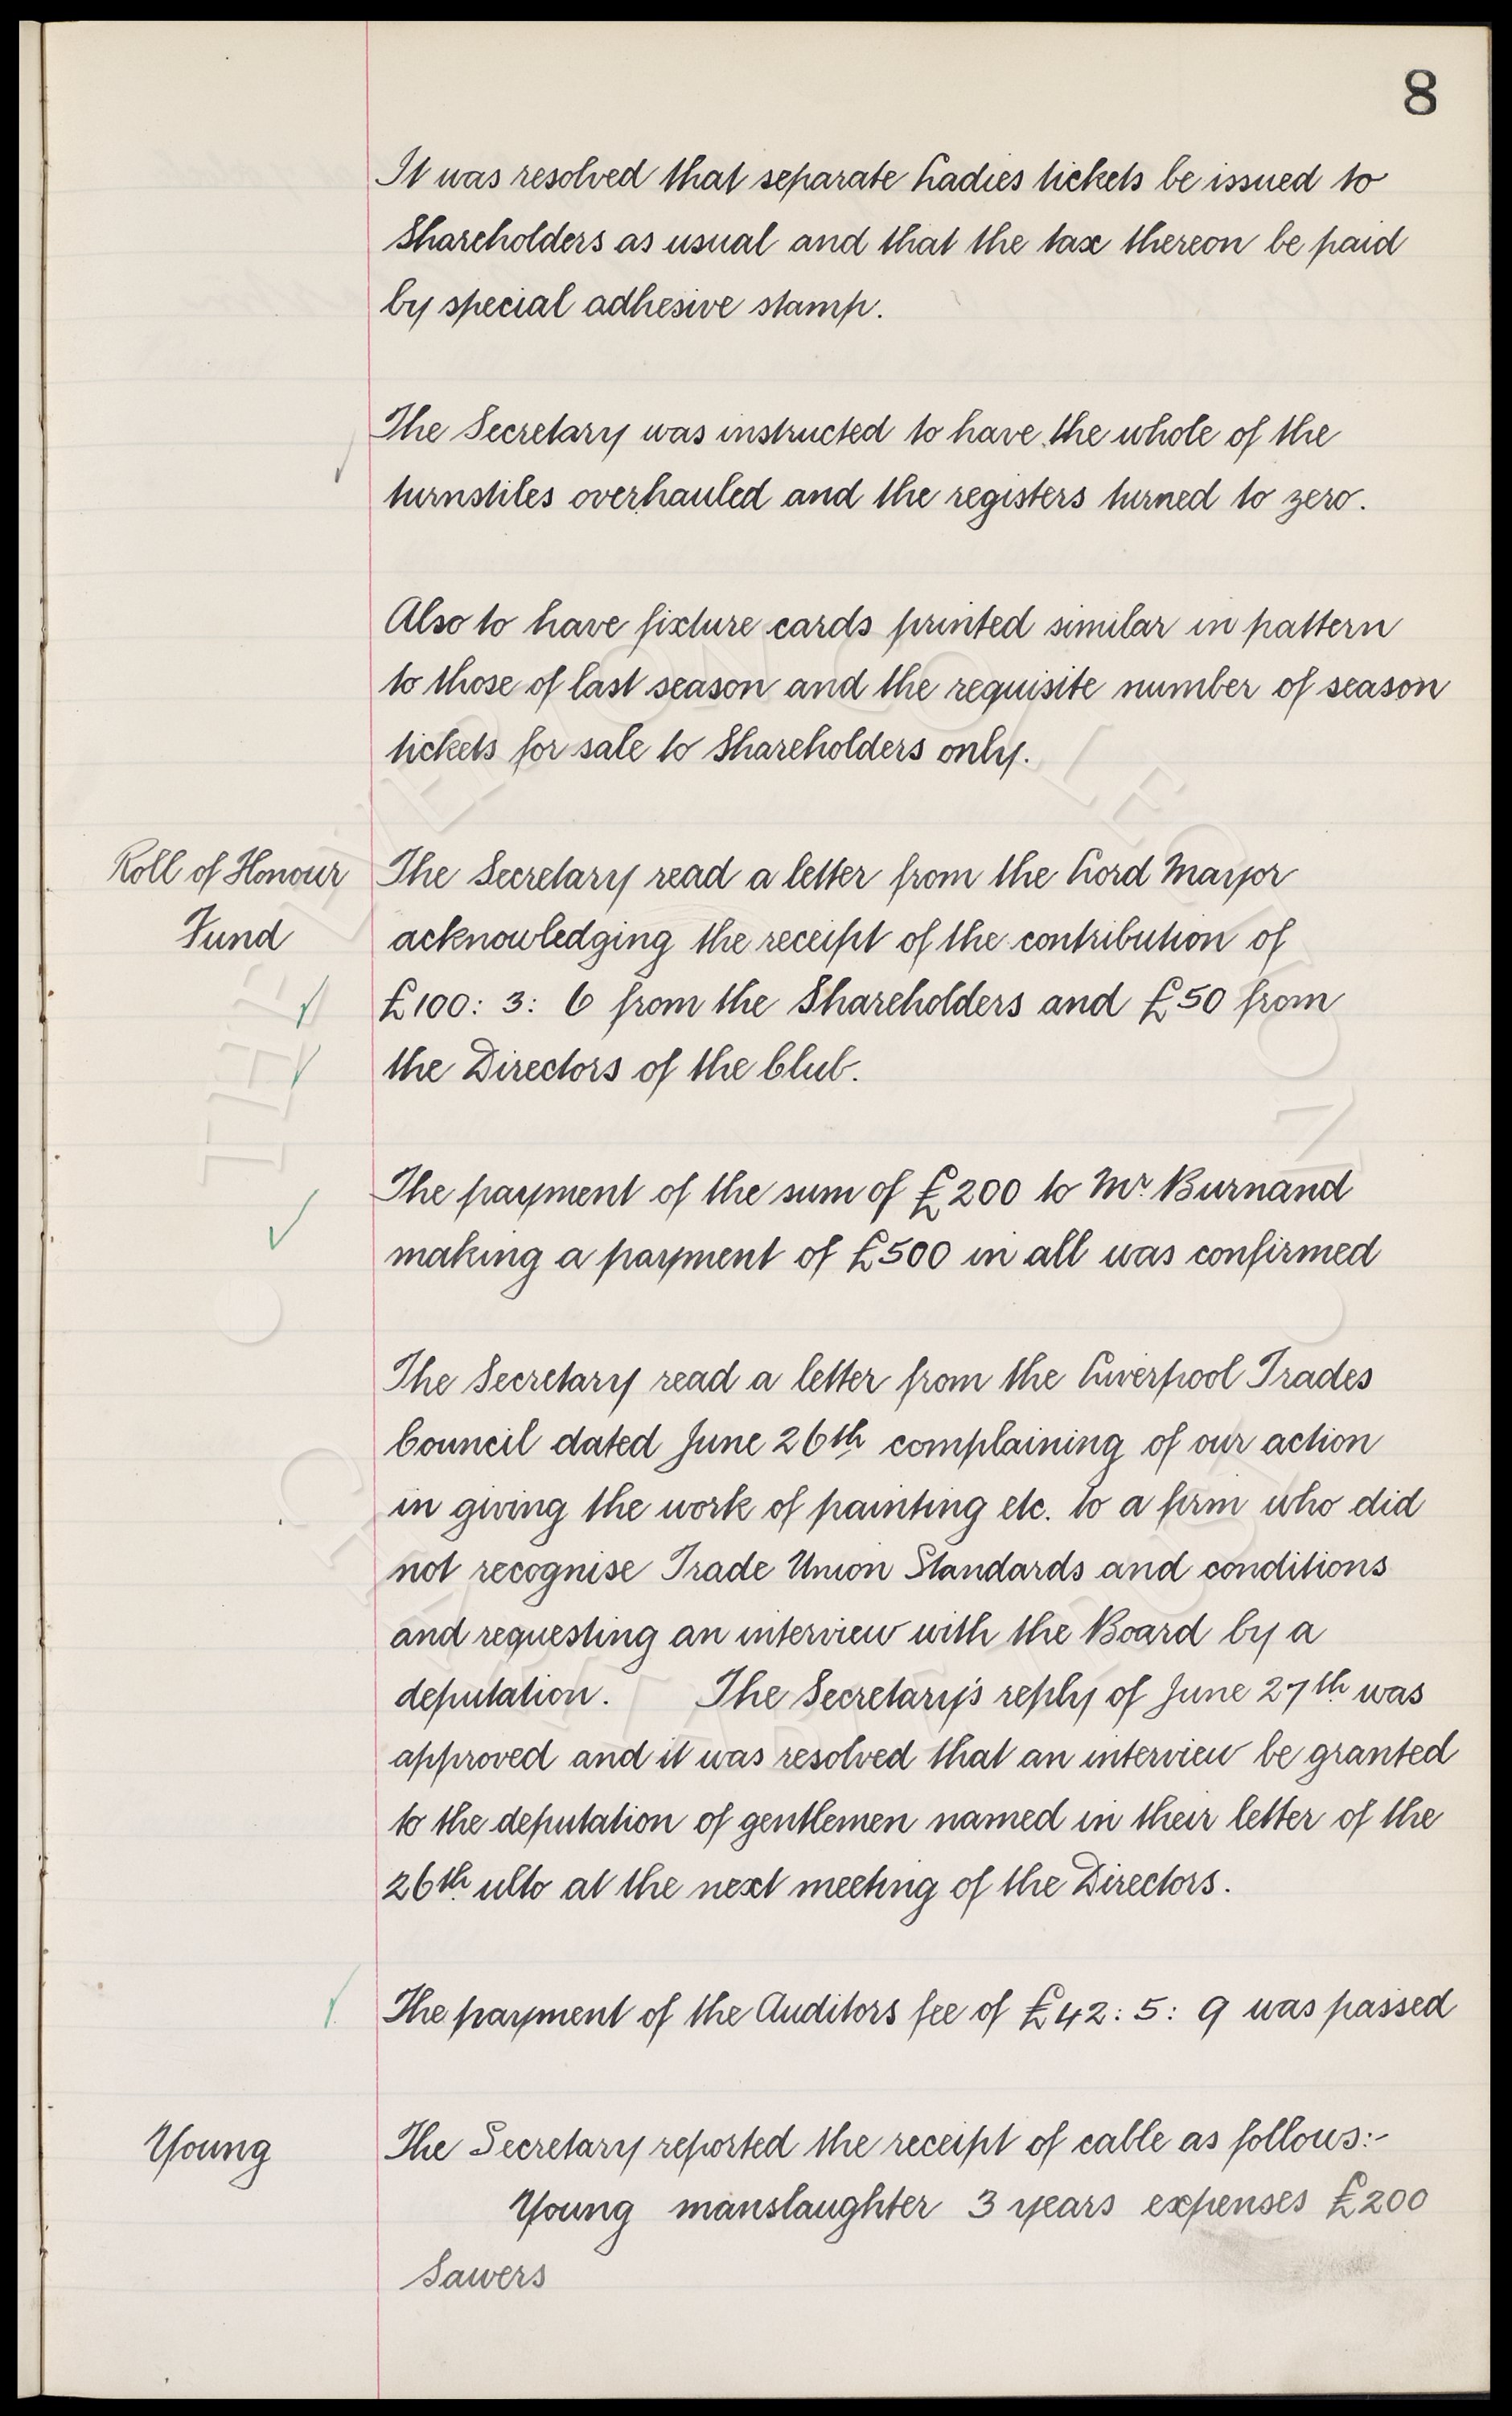 8
It was resolved that separate Ladies tickets be issued to
Shareholders as usual and that the tax thereon be paid
by special adhesive stamp.
The Secretary was instructed to have the whole of the
turnstiles overhauled and the registers turned to zero.
Also to have fixture cards printed similar in pattern
to those of last season and the requisite number of season
tickets for sale to Shareholders only.
Roll of Honour
Fund
The Secretary read a letter from the Lord Mayor
acknowledging the receipt of the contribution of
£100: 3: 6 from the Shareholders and £50 from
the Directors of the Club.
The payment of the sum of £200 to Mr Burnand
making a payment of £500 in all was confirmed
The Secretary read a letter from the Liverpool Trades
Council dated June 26th complaining of our action
in giving the work of painting etc. to a firm who did
not recognise Trade Union Standards and conditions
and requesting an interview with the Board by a
deputation. The Secretary's reply of June 27th was
approved and it was resolved that an interview be granted
to the deputation of gentlemen named in their letter of the
26th ulto at the next meeting of the Directors.
The payment of the Auditors fee of £42: 5: 9 was passed
Young
The Secretary reported the receipt of cable as follows:-
Young manslaughter 3 years expenses £200
Sawers